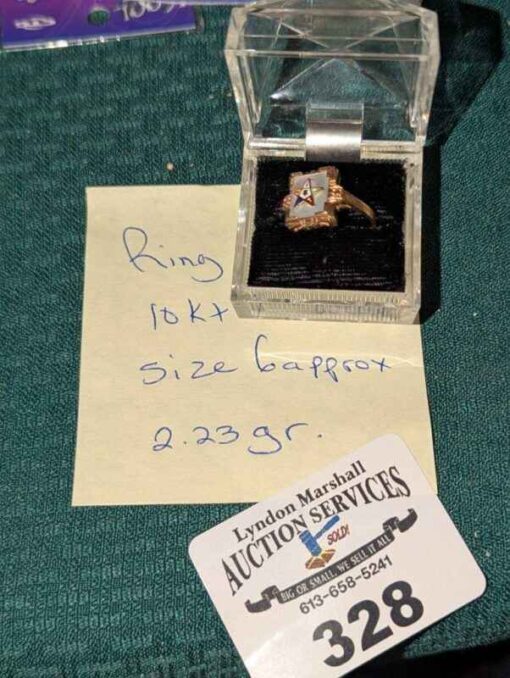 100%
Ring
10 Kt
size 6 approx
2.23 gr.
Lyndon Marshall
AUCTION SERVICES
SOLD!
BIG OR SMALL, WE SELL IT ALL
613-658-5241
328